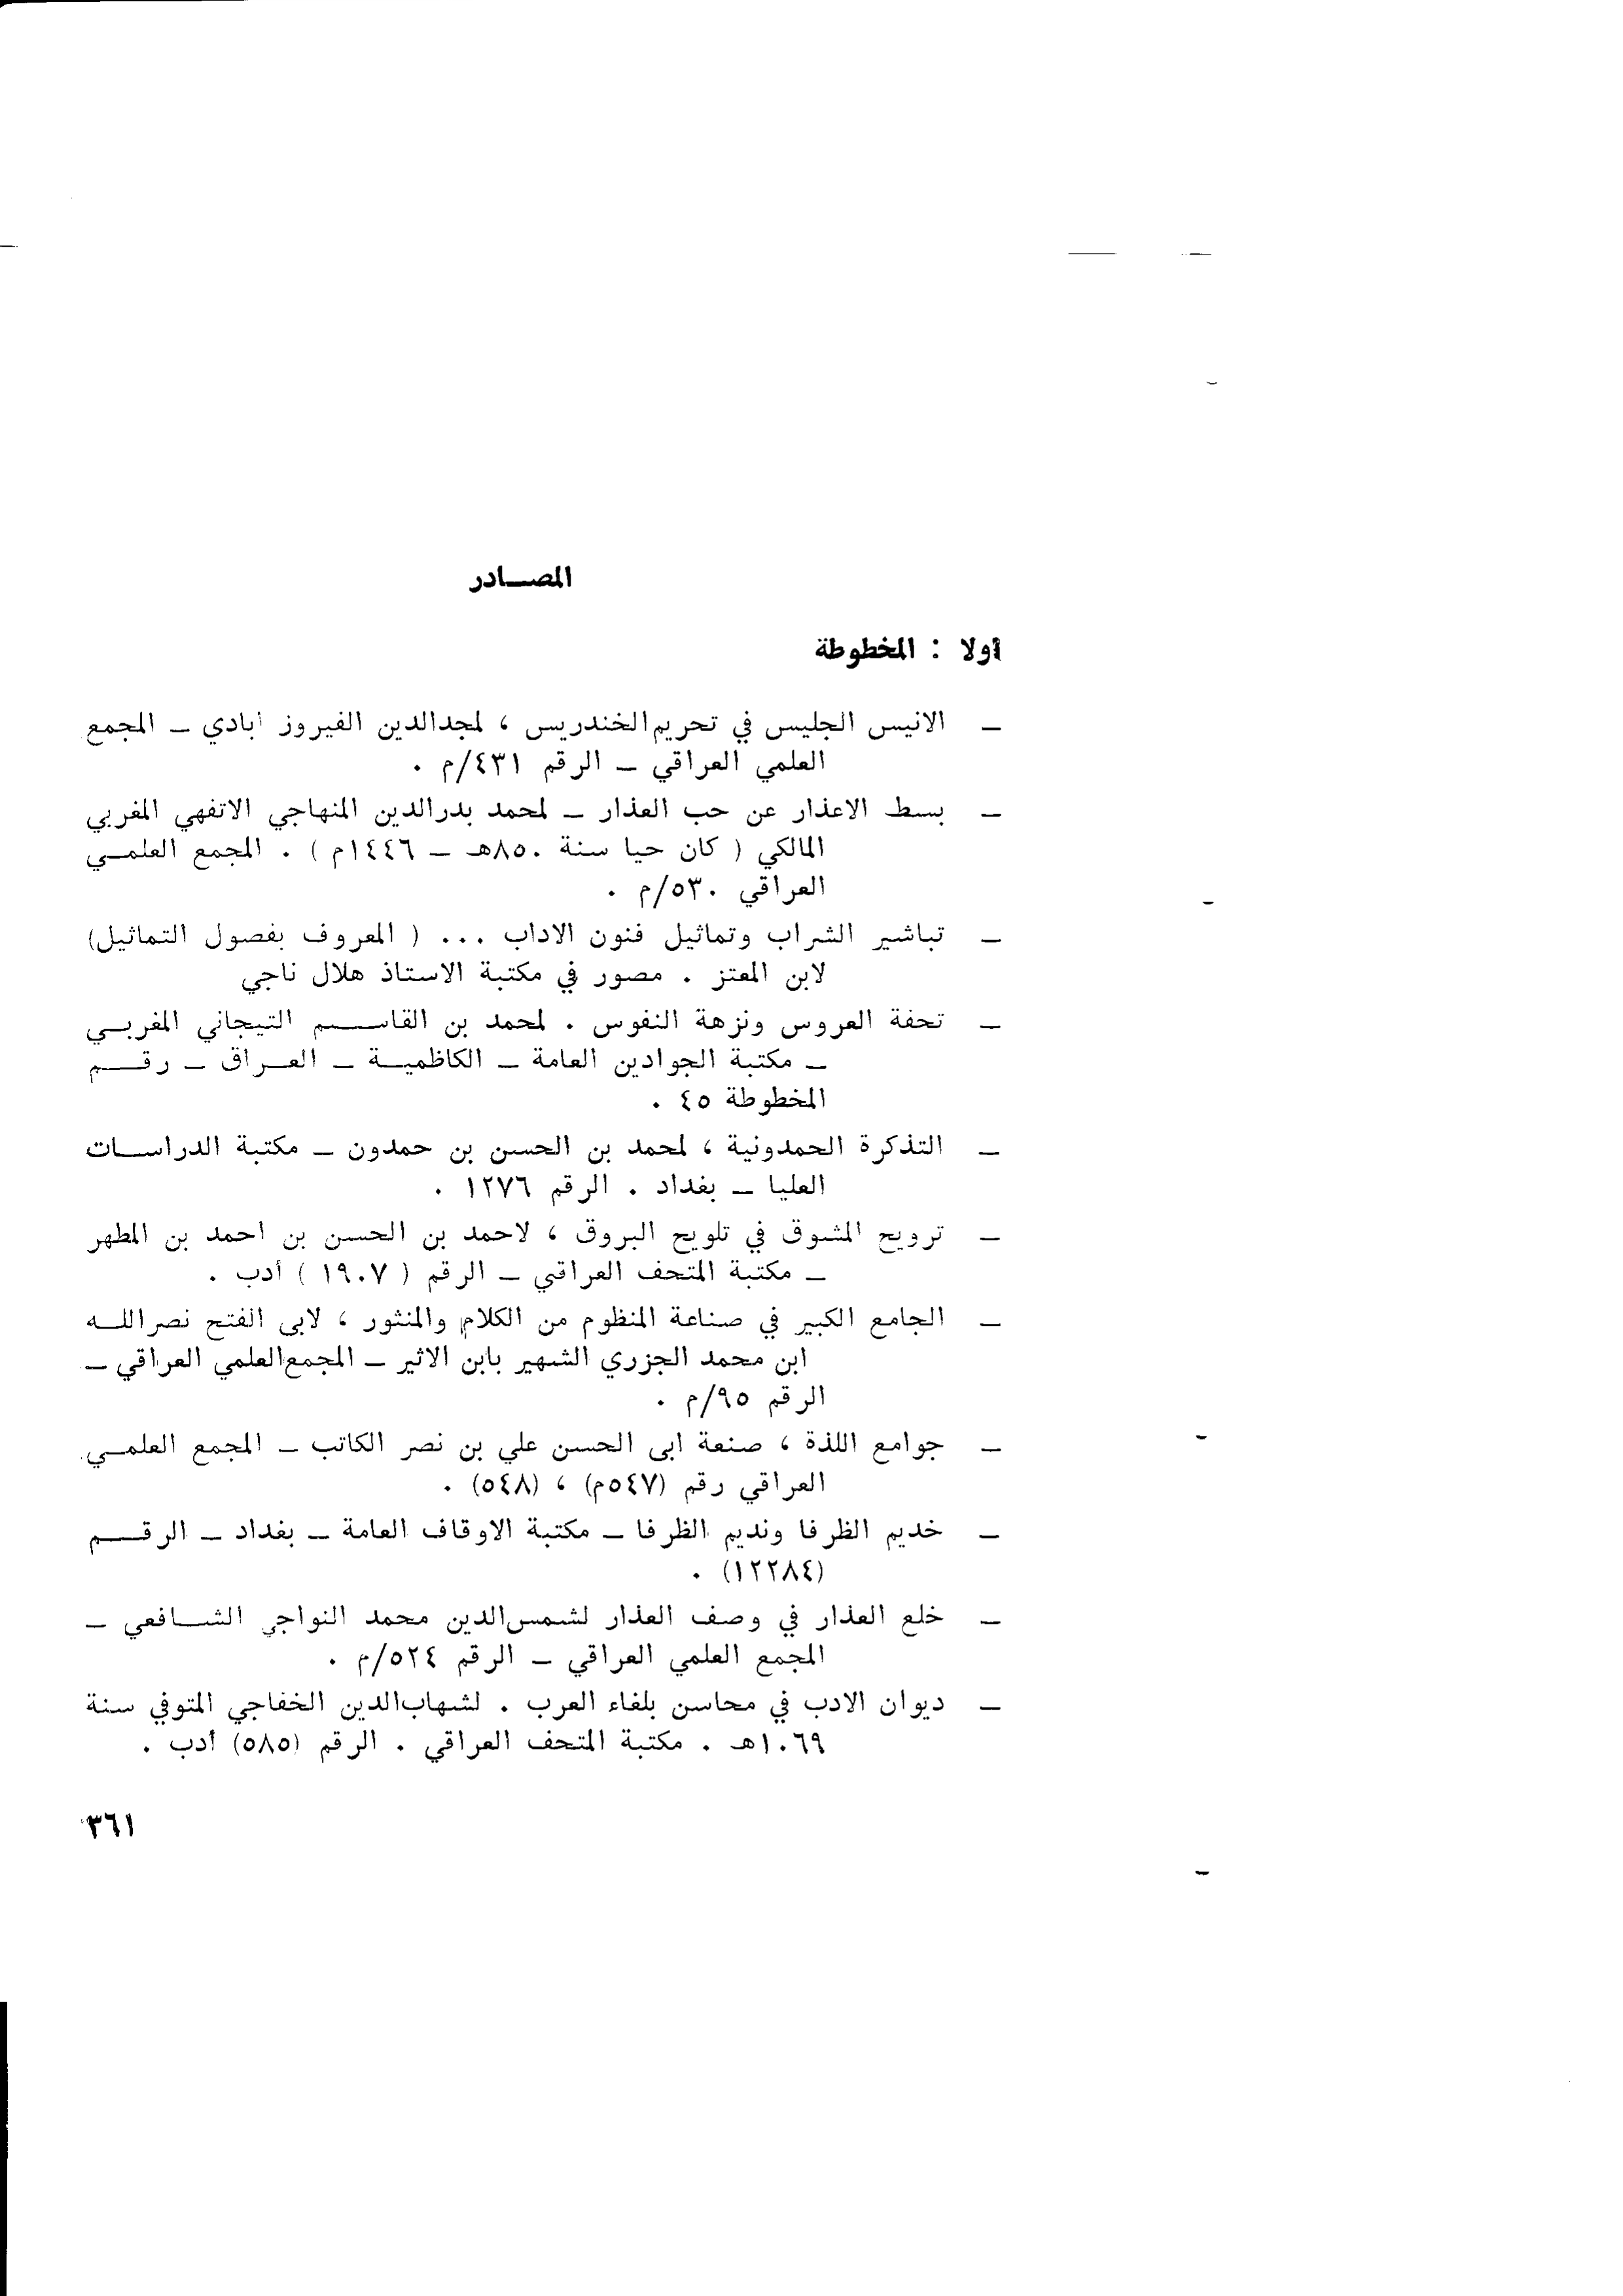 المصــادر
أولا : المخطوطة
ـ الانيس الجليس في تحريم الخندريس ، لمجدالدين الفيروز ابادي ـ المجمع
العلمي العراقي ـ الرقم ٤٣١/م .
ـ بسط الاعذار عن حب العذار ـ لمحمد بدرالدين المنهاجي الاتفهي المغربي
المالكي ( كان حيا سنة ٨٥٠هـ ـ ١٤٤٦م ) . المجمع العلمــي
العراقي ٥٣٠/م .
ـ تباشير الشراب وتماثيل فنون الاداب ... ( المعروف بفصول التماثيل)
لابن المعتز . مصور في مكتبة الاستاذ هلال ناجي
ـ تحفة العروس ونزهة النفوس . لمحمد بن القاســـم التيجاني المغربــي
ـ مكتبة الجوادين العامة ـ الكاظميــة ـ العــراق ـ رقــــم
المخطوطة ٤٥ .
ـ التذكرة الحمدونية ، لمحمد بن الحسن بن حمدون ـ مكتبة الدراســات
العليا ـ بغداد . الرقم ١٢٧٦ .
ـ ترويح المشوق في تلويح البروق ، لاحمد بن الحسن بن احمد بن المطهر
ـ مكتبة المتحف العراقي ـ الرقم ( ١٩٠٧ ) أدب .
ـ الجامع الكبير في صناعة المنظوم من الكلام والمنثور ، لابى الفتح نصراللــه
ابن محمد الجزري الشهير بابن الاثير ـ المجمع العلمي العراقي ـ
الرقم ٩٥/م .
ـ جوامع اللذة ، صنعة ابى الحسن علي بن نصر الكاتب ـ المجمع العلمــي
العراقي رقم (٥٤٧م) ، (٥٤٨) .
ـ خديم الظرفا ونديم الظرفا ـ مكتبة الاوقاف العامة ـ بغداد ـ الرقــــم
(١٢٢٨٤) .
ـ خلع العذار في وصف العذار لشمس‌الدين محمد النواجي الشــافعي ـ
المجمع العلمي العراقي ـ الرقم ٥٢٤/م .
ـ ديوان الادب في محاسن بلغاء العرب . لشهاب‌الدين الخفاجي المتوفي سنة
١٠٦٩هـ . مكتبة المتحف العراقي . الرقم (٥٨٥) أدب .
٣٦١